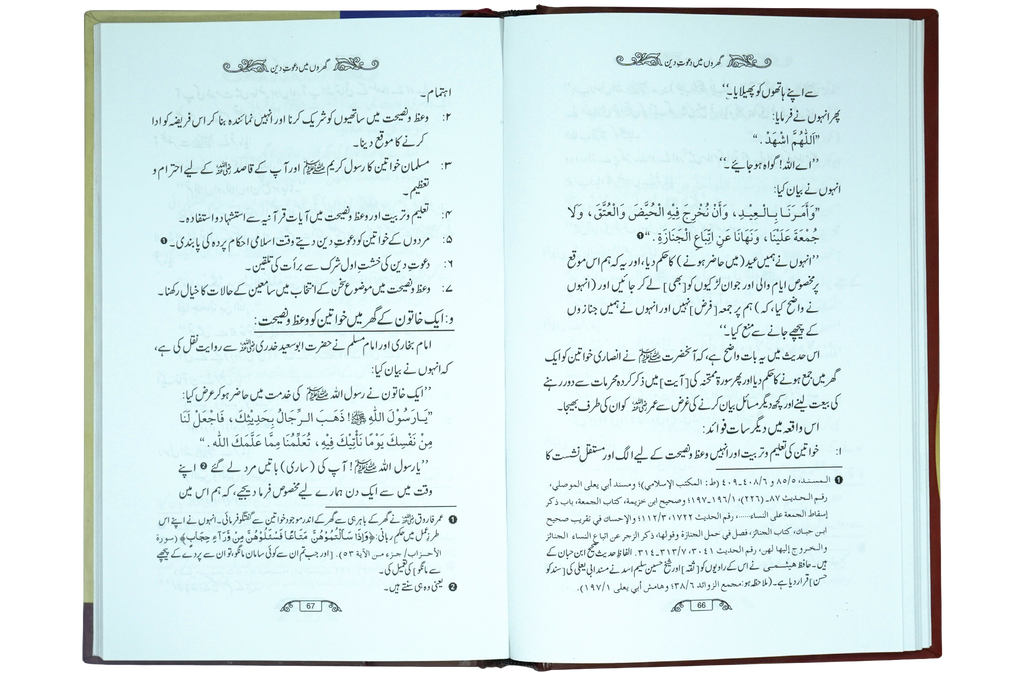 گھروں میں دعوتِ دین
سے اپنے ہاتھوں کو پھیلایا۔‘‘
پھر انہوں نے فرمایا:
”اَللّٰهُمَّ اشْهَدْ.“
’’اے اللہ! گواہ ہو جائیے۔‘‘
انہوں نے بیان کیا:
”وَأَمَرَنَا بِالْعِيدِ، وَأَنْ نُخْرِجَ فِيْهِ الْحُيَّضَ وَالْعُتَّقَ، وَلَا
جُمُعَةَ عَلَيْنَا، وَنَهَانَا عَنِ اتِّبَاعِ الْجَنَازَةِ.“ ❶
’’انہوں نے ہمیں عید (میں حاضر ہونے) کا حکم دیا، اور یہ کہ ہم اس موقع
پر مخصوص ایام والی اور جوان لڑکیوں کو [بھی] لے کر جائیں اور (انہوں
نے واضح کیا، کہ) ہم پر جمعہ [فرض] نہیں اور انہوں نے ہمیں جنازوں
کے پیچھے جانے سے منع کیا۔‘‘
اس حدیث میں یہ بات واضح ہے، کہ آنحضرت ﷺ نے انصاری خواتین کو ایک
گھر میں جمع ہونے کا حکم دیا اور پھر سورۃ ممتحنہ کی [آیت] میں ذکر کردہ محرمات سے دور رہنے
کی بیعت لینے اور کچھ دیگر مسائل بیان کرنے کی غرض سے عمر رضی اللہ عنہ کو ان کی طرف بھیجا۔
اس واقعہ میں دیگر سات فوائد:
۱: خواتین کی تعلیم و تربیت اور انہیں وعظ و نصیحت کے لیے الگ اور مستقل نشست کا
❶ المسند، ٨٥/٥ و ٤٠٨/٦-٤٠٩ (ط: المكتب الإسلامي)؛ ومسند أبي يعلى الموصلي،
رقم الحديث ٨٧-(٢٢٦)، ١٩٦/١-١٩٧؛ وصحيح ابن خزيمة، كتاب الجمعة، باب ذكر
إسقاط الجمعة على النساء......، رقم الحديث ١٧٢٢، ١١٢/٣؛ والإحسان في تقريب صحيح
ابن حبان، كتاب الجنائز، فصل في حمل الجنازة وقولها، ذكر الزجر عن اتباع النساء الجنائز
والخروج إليها لهن، رقم الحديث ٣٠٤١، ٣١٣/٧-٣١٤. الفاظِ حدیث صحیح ابن حبان کے
ہیں۔ حافظ ہیثمی نے اس کے راویوں کو [ثقہ] اور شیخ حسین سلیم اسد نے مسند ابی یعلی کی [سند کو
حسن] قرار دیا ہے۔ (ملاحظہ ہو: مجمع الزوائد ٣٨/٦؛ وهامش أبي يعلى ١٩٧/١).
66
گھروں میں دعوتِ دین
اہتمام۔
۲: وعظ و نصیحت میں ساتھیوں کو شریک کرنا اور انہیں نمائندہ بنا کر اس فریضہ کو ادا
کرنے کا موقع دینا۔
۳: مسلمان خواتین کا رسول کریم ﷺ اور آپ کے قاصد رضی اللہ عنہ کے لیے احترام و
تعظیم۔
۴: تعلیم و تربیت اور وعظ و نصیحت میں آیاتِ قرآنیہ سے استشہاد و استفادہ۔
۵: مردوں کے خواتین کو دعوتِ دین دیتے وقت اسلامی احکامِ پردہ کی پابندی۔ ❶
۶: دعوتِ دین کی خشتِ اول شرک سے برأت کی تلقین۔
۷: وعظ و نصیحت میں موضوعِ سخن کے انتخاب میں سامعین کے حالات کا خیال رکھنا۔
و: ایک خاتون کے گھر میں خواتین کو وعظ و نصیحت:
امام بخاری اور امام مسلم نے حضرت ابوسعید خدری رضی اللہ عنہ سے روایت نقل کی ہے،
کہ انہوں نے بیان کیا:
’’ایک خاتون نے رسول اللہ ﷺ کی خدمت میں حاضر ہو کر عرض کیا:
”يَا رَسُوْلَ اللّٰهِ ﷺ! ذَهَبَ الرِّجَالُ بِحَدِيْثِكَ، فَاجْعَلْ لَنَا
مِنْ نَفْسِكَ يَوْمًا نَأْتِيْكَ فِيْهِ، تُعَلِّمُنَا مِمَّا عَلَّمَكَ اللّٰه.“
’’یا رسول اللہ ﷺ! آپ کی (ساری) باتیں مرد لے گئے ❷ اپنے
وقت میں سے ایک دن ہمارے لیے مخصوص فرما دیجیے، کہ ہم اس میں
❶ عمر فاروق رضی اللہ عنہ نے گھر کے باہر ہی سے گھر کے اندر موجود خواتین سے گفتگو فرمائی۔ انہوں نے اپنے اس
طرزِ عمل میں حکمِ ربانی: ﴿وَإِذَا سَأَلْتُمُوْهُنَّ مَتَاعًا فَسْئَلُوْهُنَّ مِنْ وَّرَآءِ حِجَابٍ﴾ (سورة
الأحزاب/ جزء من الآية ٥٣). [اور جب تم ان سے کوئی سامان مانگو، تو ان سے پردے کے پیچھے
سے مانگو] کی تعمیل کی۔
❷ یعنی وہ ہی سنتے ہیں۔
67